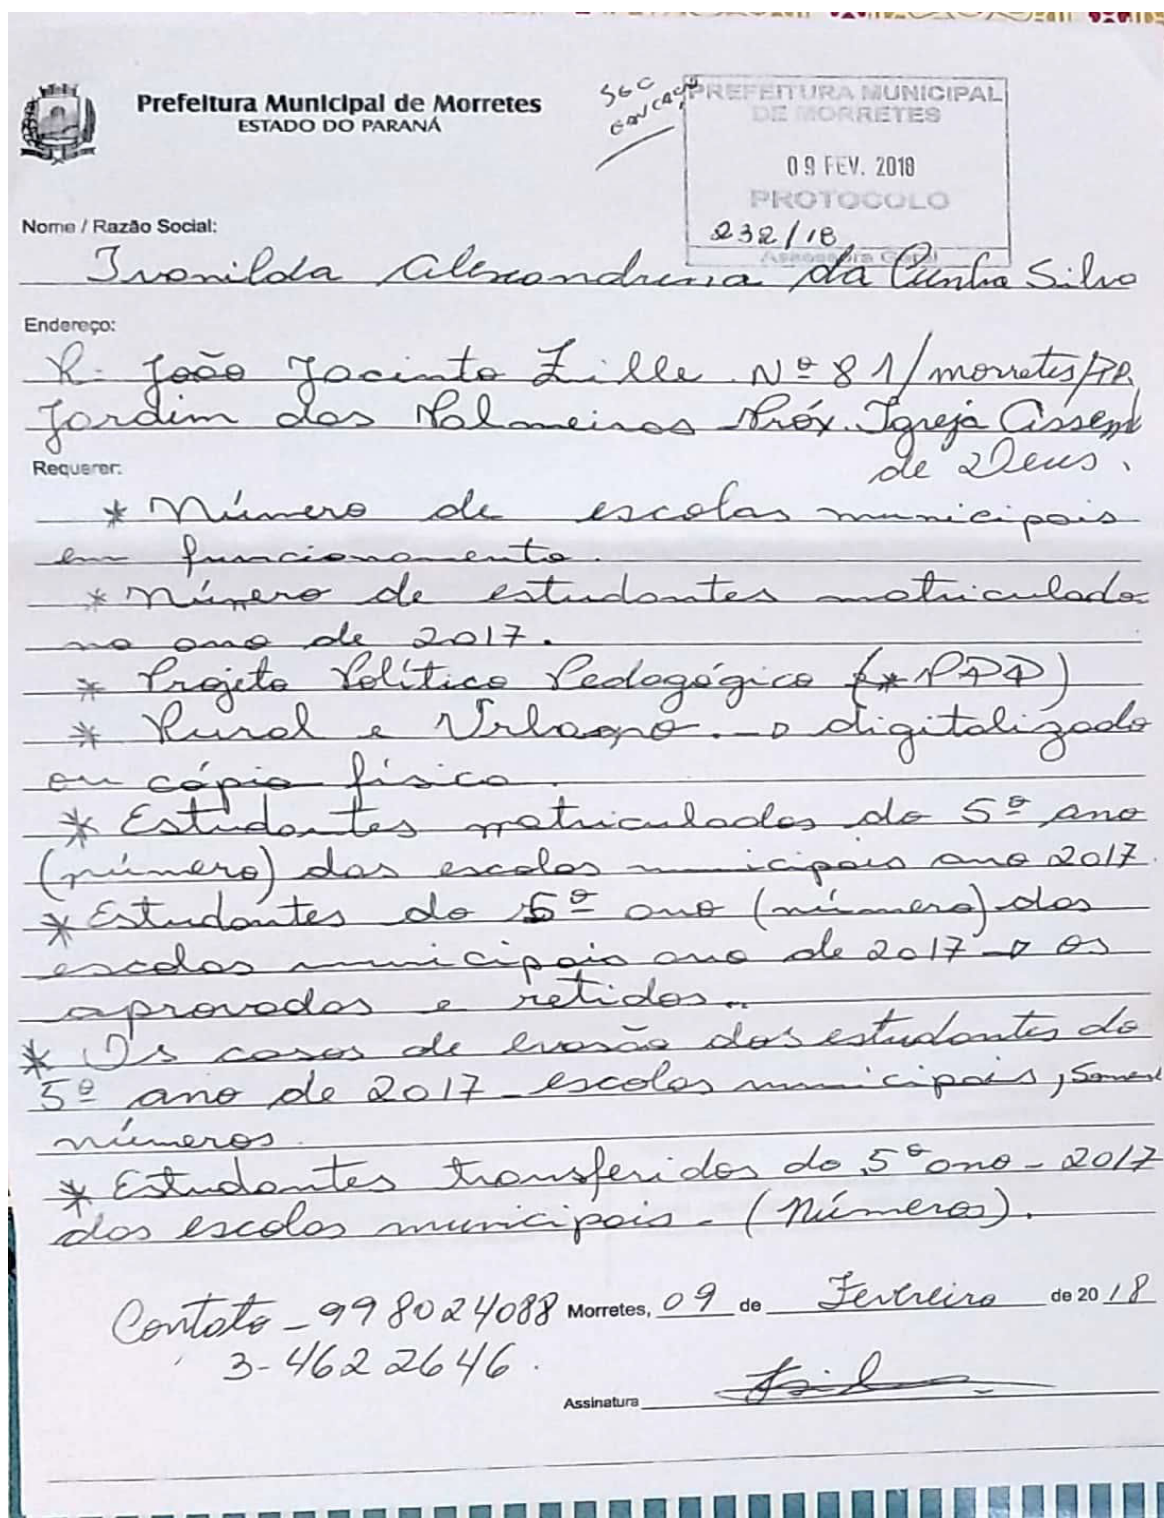 Prefeitura Municipal de Morretes
ESTADO DO PARANÁ
PREFEITURA MUNICIPAL
DE MORRETES
09 FEV. 2018
PROTOCOLO
232/18
Assessoria Geral
Nome / Razão Social:
Ivonilda Alexandrina da Cunha Silva
Endereço:
R. João Jacinto Zille Nº 81/morretes/PR.
Jardim das Palmeiras Próx. Igreja Assem
de Deus.
Requerer:
* Número de escolas municipais
em funcionamento.
* Número de estudantes matriculados
no ano de 2017.
* Projeto Político Pedagógico (* PPP)
* Rural e Urbano. → digitalizado
ou cópia física.
* Estudantes matriculados do 5º ano
(número) das escolas municipais ano 2017.
* Estudantes do 5º ano (número) das
escolas municipais ano de 2017 → os
aprovados e retidos..
* Os casos de evasão dos estudantes do
5º ano de 2017 - escolas municipais, Soment
números.
* Estudantes transferidos do 5º ano - 2017
das escolas municipais - (Números).
Contato - 998024088 Morretes, 09 de Fevereiro de 2018
3-4622646.
Assinatura